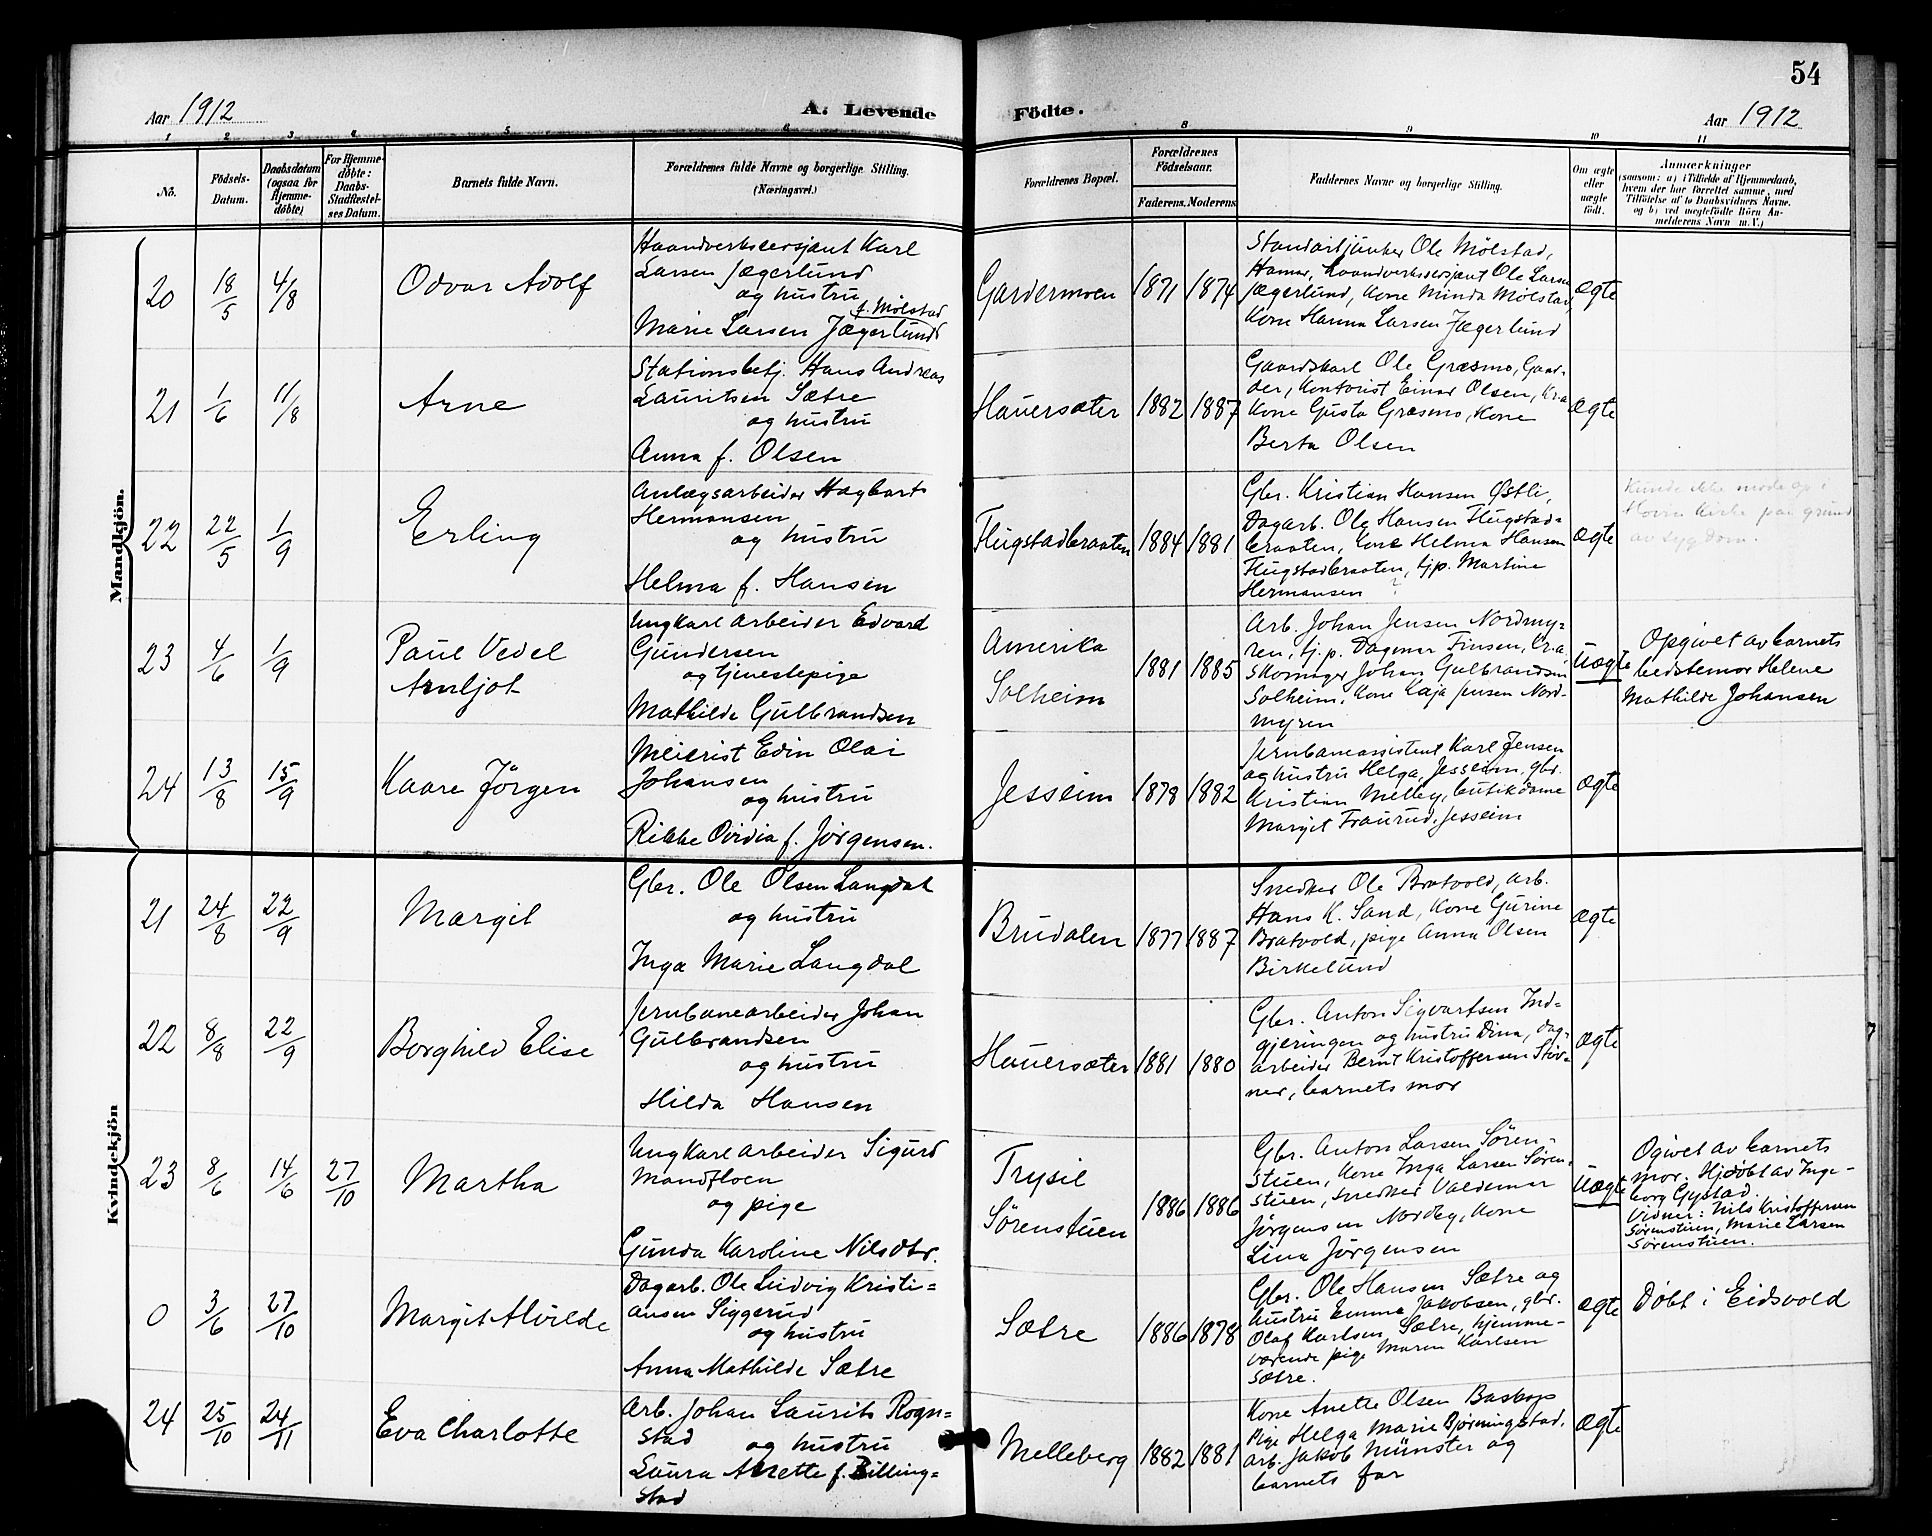 54
Aar 1912
A. Levende
Födte.
Aar 1912
1 2 3 4 5 6 8 9 10 11
No.
Födsels-
Datum.
Daabsdatum
(ogsaa for
Hjemme-
döbte)
For Hjemme-
döbte:
Daabs-
Stadfæstel-
ses Datum.
Barnets fulde Navn.
Forældrenes fulde Navne og borgerlige Stilling.
(Næringsvei.)
Forældrenes Bopæl.
Forældrenes
Födselsaar.
Faderens. Moderens
Faddernes Navne og borgerlige Stilling.
Om ægte
eller
uægte
født.
Anmærkninger
(saasom: a) i Tilfælde af Hjemmedaab,
hvem der har forrettet samme, med
Tilföielse af to Daabsvidners Navne.
og b) ved uægtefödte Börn An-
melderens Navn m.V.)
Mandkjön.
20
18/5
4/8
Odvar Adolf
Haandverkssersjant Karl
Larsen Jægerlund
og hustru
f. Mølstad
Marie Larsen Jægerlund
Gardermoen
1871
1874
Standartjunker Ole Mølstad,
Hamar, haandverkssersjant Ole Larsen
Jægerlund, Kone Minda Mølstad,
Kone Hanna Larsen Jægerlund
Ægte
21
1/6
11/8
Arne
Stationsbetj. Hans Andreas
Lauritsen Sætre
og hustru
Anna f. Olsen
Hauersæter
1882
1887
Gaardskarl Ole Græsmo, Gaar-
der, Kontorist Einar Olsen, Kra
Kone Gusta Græsmo, Kone
Berta Olsen
Ægte
22
22/5
1/9
Erling
Anlægsarbeider Hagbart
Hermansen
og hustru
Helma f. Hansen
Flugstadbraaten
1884
1881
Gbr. Kristian Hansen Østli,
Dagarb. Ole Hansen Flugstad-
braaten, Kone Helma Hansen
Flugstadbraaten, tjp. Martine
Hermansen ?
Ægte
Kunde ikke møde op i
Hovin Kirke paa grund
av sygdom.
23
4/6
1/9
Paul Vedel
Arnljot
Ungkarl arbeider Edvard
Gundersen
og tjenestepige
Mathilde Gulbrandsen
Amerika
Solheim
1881
1885
Arb. Johan Jensen Nordmy-
ren, tj.p. Dagmar Finsen, Kr.a
Skomager Johan Gulbrandsen
Solheim, Kone Kaja Jensen Nord-
myren
Uægte
Opgivet av barnets
bedstemor Helene
Mathilde Johansen
24
13/8
15/9
Kaare Jörgen
Meierist Edin Olai
Johansen
og hustru
Rikke Ovidia f. Jörgensen.
Jesseim
1878
1882
Jernbaneassistent Karl Jensen
og hustru Helga, Jesseim, gbr.
Kristian Melby, butikdame
Margit Fraurud, Jesseim
Ægte
Kvindekjön
21
24/8
22/9
Margit
Gbr. Ole Olsen Langdal
og hustru
Inga Marie Langdal
Brudalen
1877
1887
Snedker Ole Bratvold, arb.
Hans K. Sand, Kone Gurine
Bratvold, pige Anna Olsen
Birkelund
Ægte
22
8/8
22/9
Borghild Elise
Jernbanearbeider Johan
Gulbrandsen
og hustru
Hilda Hansen
Hauersæter
1881
1880
Gbr. Anton Sigvartsen Ind-
gjeringen og hustru Dina, dag-
arbeider Bernt Kristoffersen Stöv-
ner, barnets mor
Ægte
23
8/6
14/6
27/10
Martha
Ungkarl arbeider Sigurd
Mandfloen
og pige
Gunda Karoline Nilsdtr.
Trysil
Sørenstuen
1886
1886
Gbr. Anton Larsen Søren-
stuen, Kone Inga Larsen Søren-
stuen, snedker Valdemar
Jørgensen Nordby, Kone
Lina Jørgensen
Uægte
Ogivet av barnets
mor. Hjdøbt av Inge-
borg Gystad.
Vidner: Nils Kristoffersen
Sørenstuen, Marie Larsen
Sørenstuen.
0
3/6
27/10
Margit Alvilde
Dagarb. Ole Ludvig Kristi-
ansen Siggerud
og hustru
Anna Mathilde Sætre
Sætre
1886
1878
Gbr. Ole Hansen Sætre og
hustru Emma Jakobsen, gbr.
Olaf Karlsen Sætre, hjemme-
værende pige Maren Karlsen
Sætre.
Ægte
Döbt i Eidsvold
24
25/10
24/11
Eva Charlotte
Arb. Johan Laurits Rogn-
stad og hustru
Laura Anette f. Billing-
stad
Melleberg
1882
1881
Kone Anette Olsen Baskop
Pige Helga Marie Bjørningstad,
arb. Jakob Münster og
barnets far
Ægte